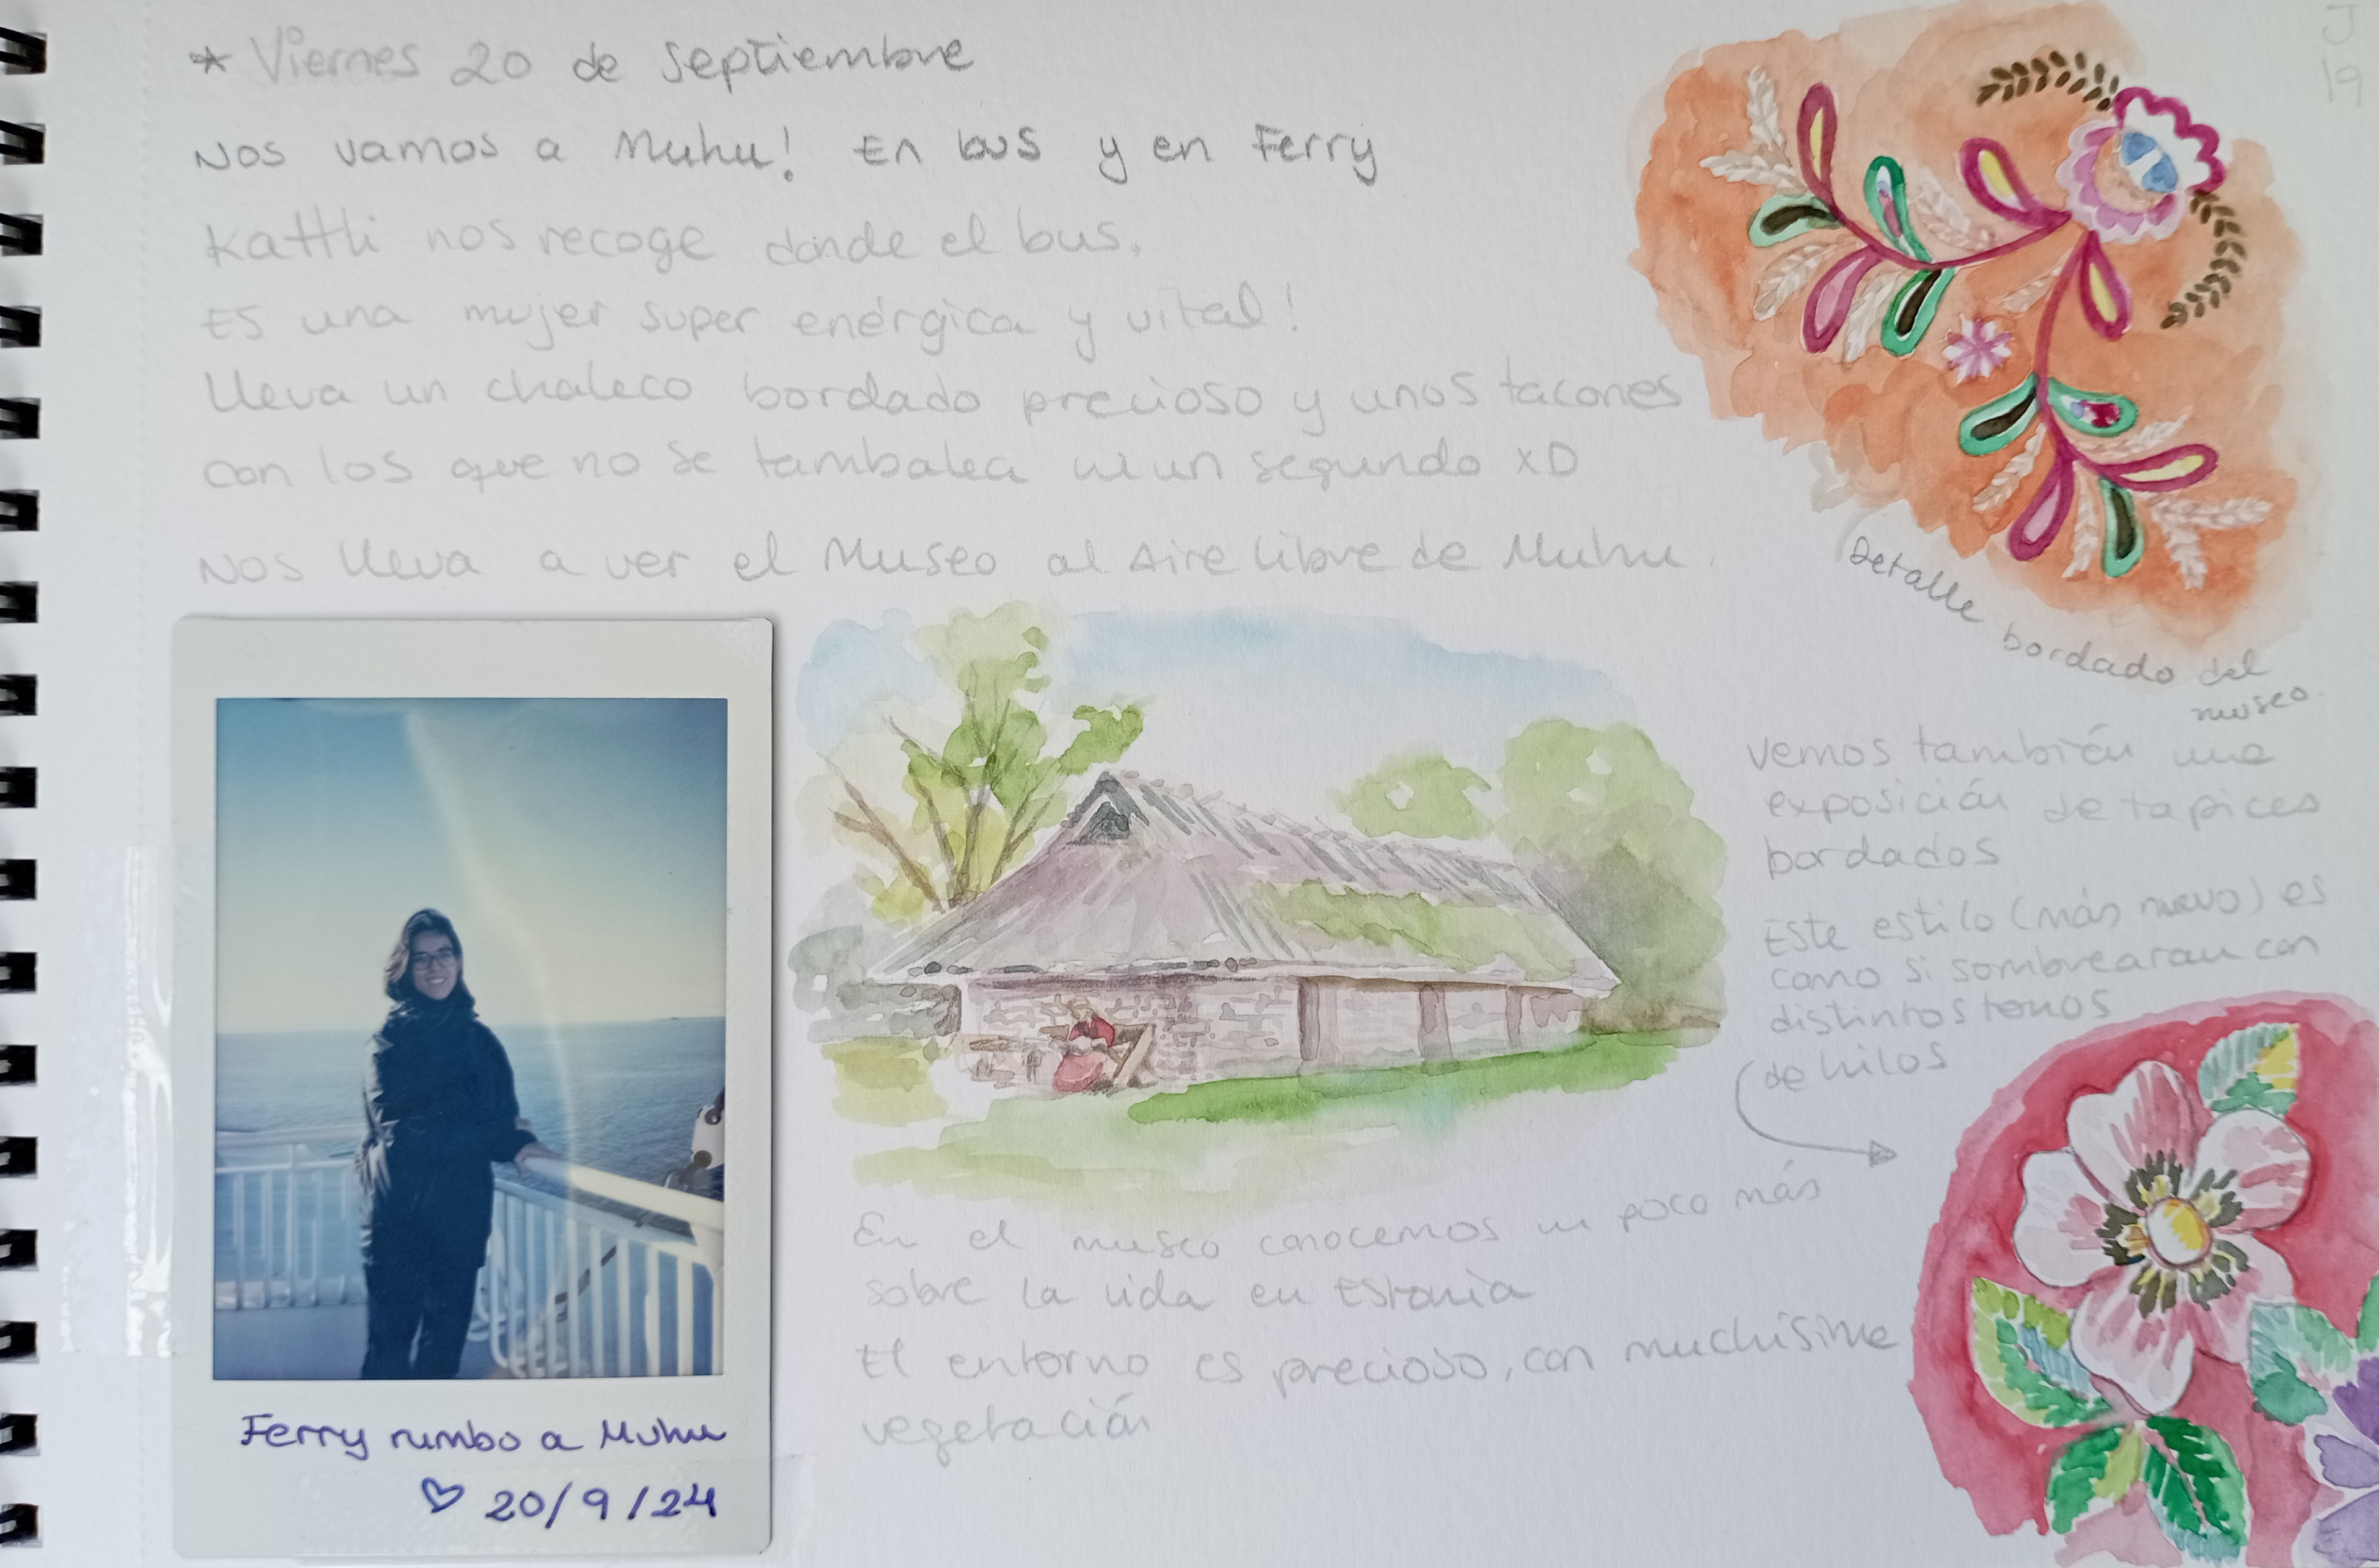 * Viernes 20 de Septiembre
Nos vamos a Muhu! En bus y en Ferry
Kattli nos recoge donde el bus,
Es una mujer super enérgica y vital!
Lleva un chaleco bordado precioso y unos tacones
con los que no se tambalea ni un segundo XD
Nos lleva a ver el Museo al Aire Libre de Muhu.
J
19
Detalle bordado del
museo.
Vemos también una
exposición de tapices
bordados
Este estilo (más nuevo) es
como si sombrearan con
distintos tonos
de hilos
En el museo conocemos un poco más
sobre la vida en Estonia
El entorno es precioso, con muchísima
vegetación
Ferry rumbo a Muhu
♡ 20/9/24